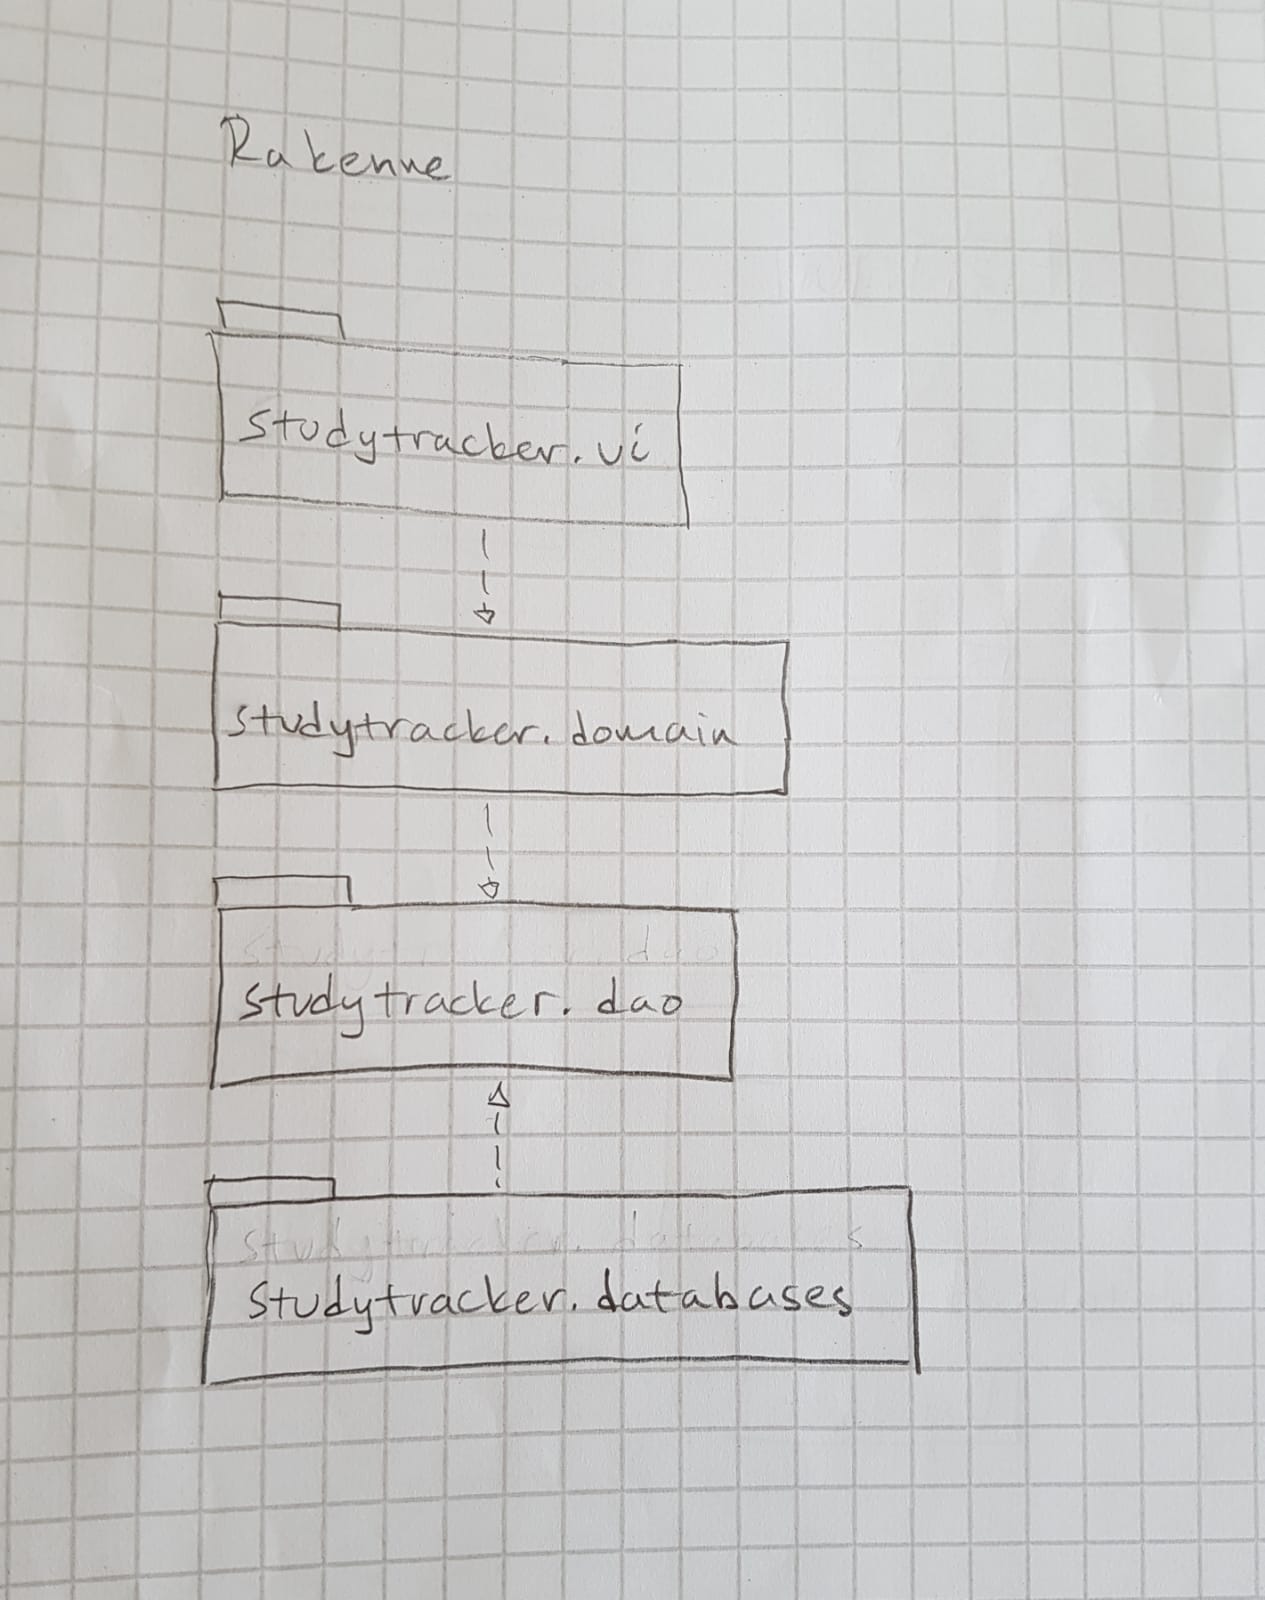 Rakenne
studytracker.ui
studytracker.domain
studytracker.dao
studytracker.databases